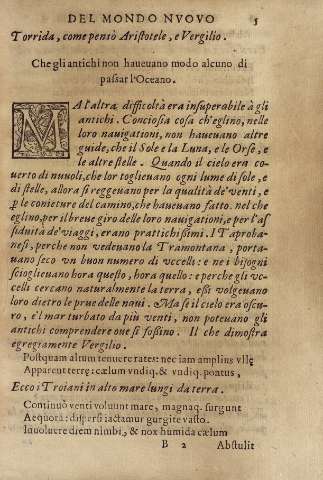 DEL MONDO NVOVO 5
Torrida, come pensò Aristotele, e Vergilio.
Che gli antichi non haueuano modo alcuno di
passar l'Oceano.
MA l'altra difficoltà era insuperabile à gli
antichi. Conciosia cosa ch'eglino, nelle
loro nauigationi, non haueuano altre
guide, che il Sole e la Luna, e le Orse, e
le altre stelle. Quando il cielo era co
uerto di nuuoli, che lor toglieuano ogni lume di sole, e
di stelle, allora si reggeuano per la qualità de' venti, e
per le conieture del camino, che haueuano fatto. nel che
eglino, per il breue giro delle loro nauigationi, e per l'as
siduità de' viaggi, erano prattichissimi. I Taproba-
nesi, perche non vedeuano la Tramontana, porta-
uano seco vn buon numero di vccelli: e ne i bisogni
scioglieuano hora questo, hora quello: e perche gli vc-
celli cercano naturalmente la terra, essi volgeuano
loro dietro le prue delle naui. Ma se il cielo era oscu-
ro, e'l mar turbato da più venti, non poteuano gli
antichi comprendere oue si fossino. Il che dimostra
egregiamente Vergilio.
Postquam altum tenuere rates: nec iam amplius vllę
Apparent terrę: cælum vndiq. & vndiq. pontus,
Ecco i Troiani in alto mare lungi da terra.
Continuò venti voluunt mare, magnaq. surgunt
Aequora: dispersi iactamur gurgite vasto.
Inuoluere diem nimbi, & nox humida cælum
B 2 Abstulit